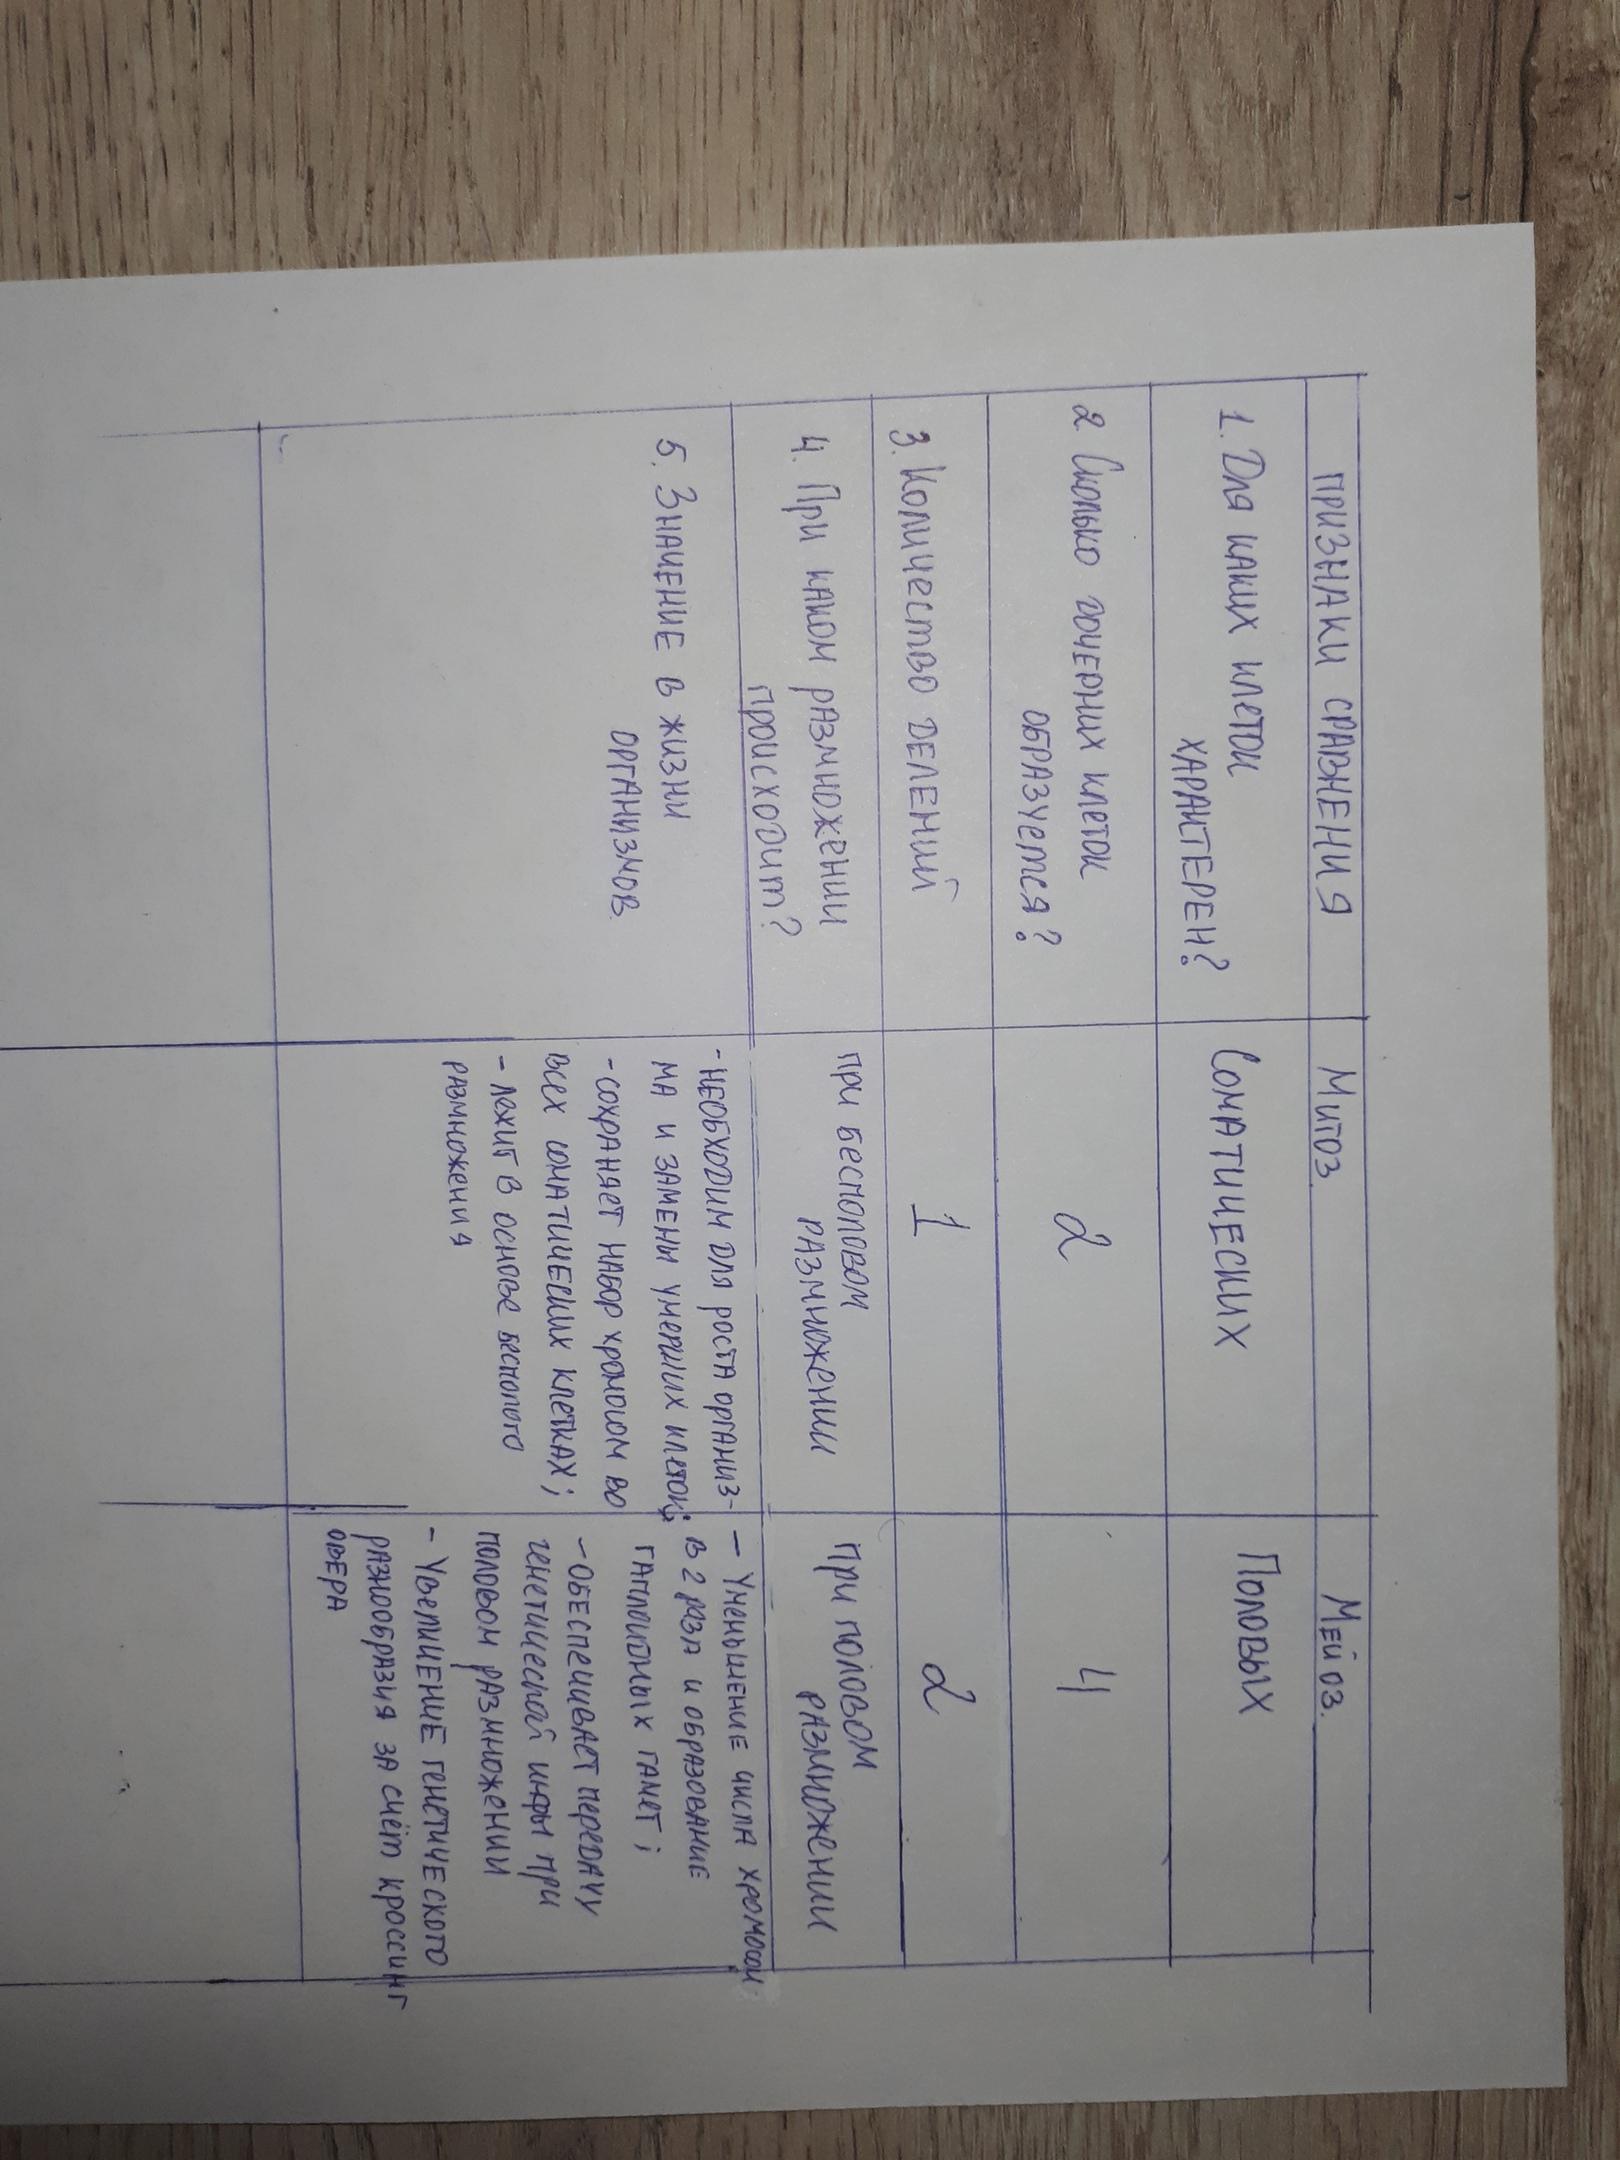 ПРИЗНАКИ СРАВНЕНИЯ
Митоз
Мейоз.
1. Для каких клеток
характерен?
Соматических
Половых
2. Сколько дочерних клеток
образуется?
2
4
3. Количество делений
1
2
4. При каком размножении
происходит?
при бесполовом
размножении
При половом
размножении
5. Значение в жизни
организмов.
-необходим для роста организ-
ма и замены умерших клеток;
-сохраняет набор хромосом во
всех соматических клетках;
- лежит в основе бесполого
размножения
- Уменьшение числа хромосом
в 2 раза и образование
гаплоидных гамет;
- обеспечивает передачу
генетической инфы при
половом размножении
- Увеличение генетического
разнообразия за счёт кроссинг
овера